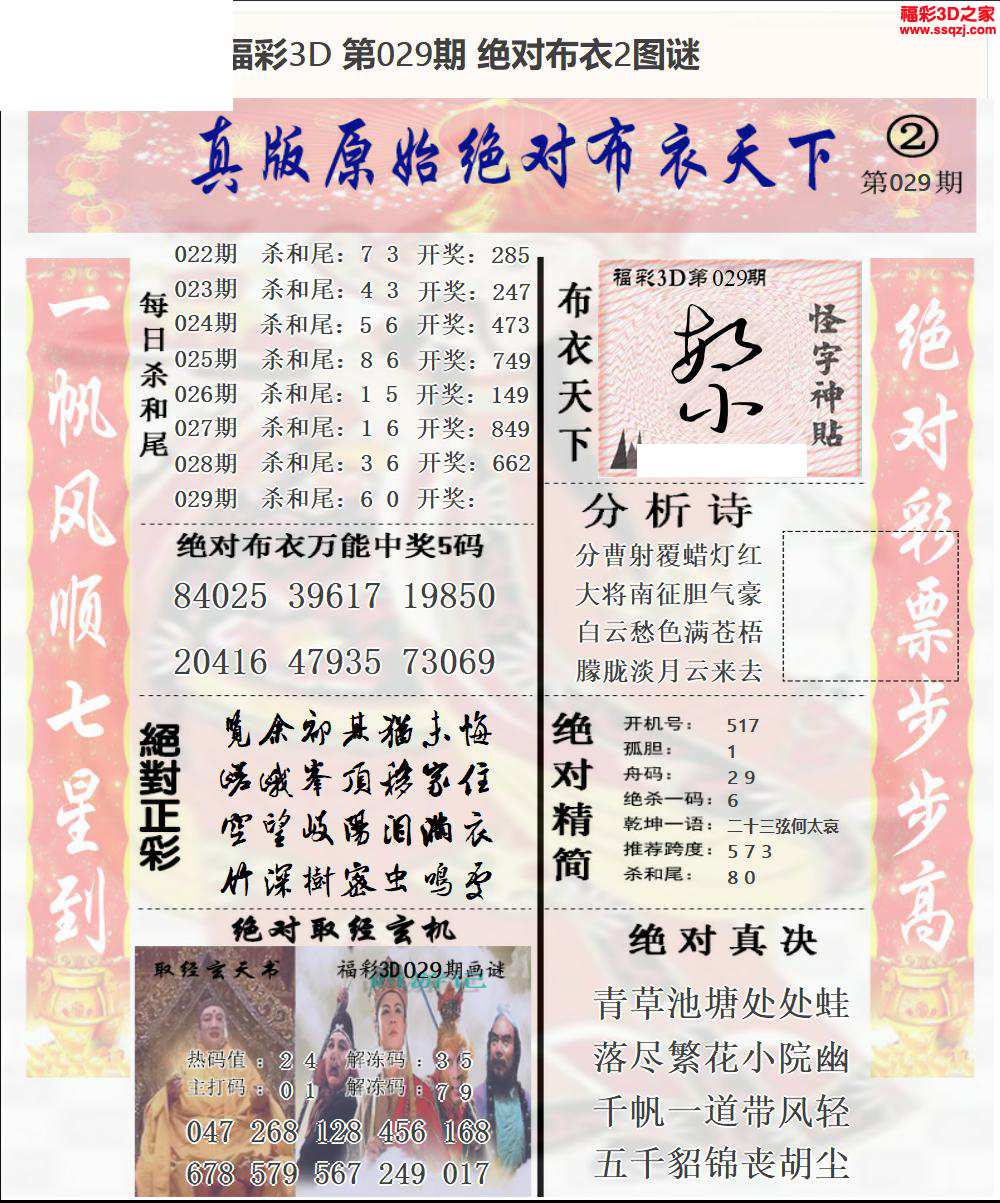 福彩3D之家
www.ssqzj.com
福彩3D 第029期 绝对布衣2图谜
真版原始绝对布衣天下
②
第029期
一帆风顺七星到
每日杀和尾
022期 杀和尾：7 3 开奖：285
023期 杀和尾：4 3 开奖：247
024期 杀和尾：5 6 开奖：473
025期 杀和尾：8 6 开奖：749
026期 杀和尾：1 5 开奖：149
027期 杀和尾：1 6 开奖：849
028期 杀和尾：3 6 开奖：662
029期 杀和尾：6 0 开奖：
绝对布衣万能中奖5码
84025 39617 19850
20416 47935 73069
絕對正彩
覽余初其猶未悔
嵯峨峯頂移家住
空望岐陽泪满衣
竹深樹密虫鳴處
绝对取经玄机
取经玄天书
福彩3D029期画谜
热码值：2 4 解冻码：3 5
主打码：0 1 解冻码：7 9
047 268 128 456 168
678 579 567 249 017
布衣天下
福彩3D第029期
怪字神貼
分析诗
分曹射覆蜡灯红
大将南征胆气豪
白云愁色满苍梧
朦胧淡月云来去
绝对精简
开机号：517
孤胆：1
舟码：2 9
绝杀一码：6
乾坤一语：二十三弦何太哀
推荐跨度：5 7 3
杀和尾：8 0
绝对真决
青草池塘处处蛙
落尽繁花小院幽
千帆一道带风轻
五千貂锦丧胡尘
绝对彩票步步高